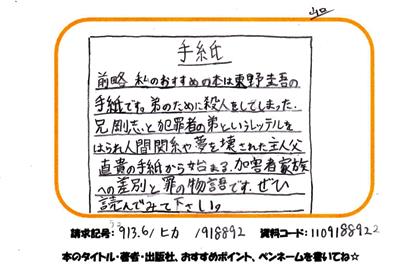 山口
手紙
前略 私のおすすめの本は東野圭吾の
手紙です。弟のために殺人をしてしまった.
兄剛志と犯罪者の弟というレッテルを
はられ人間関係や夢を壊された主人公
直貴の手紙から始まる.加害者家族
への差別と罪の物語です。ぜひ
読んでみて下さい。
請求記号:913.6/ヒカ /918892 資料コード:1109188922
本のタイトル・著者・出版社、おすすめポイント、ペンネームを書いてね☆